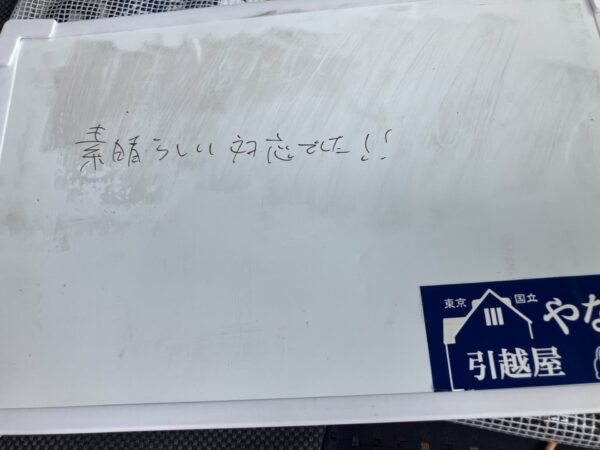 素晴らしい対応でした!!
東京 国立
やな
引越屋